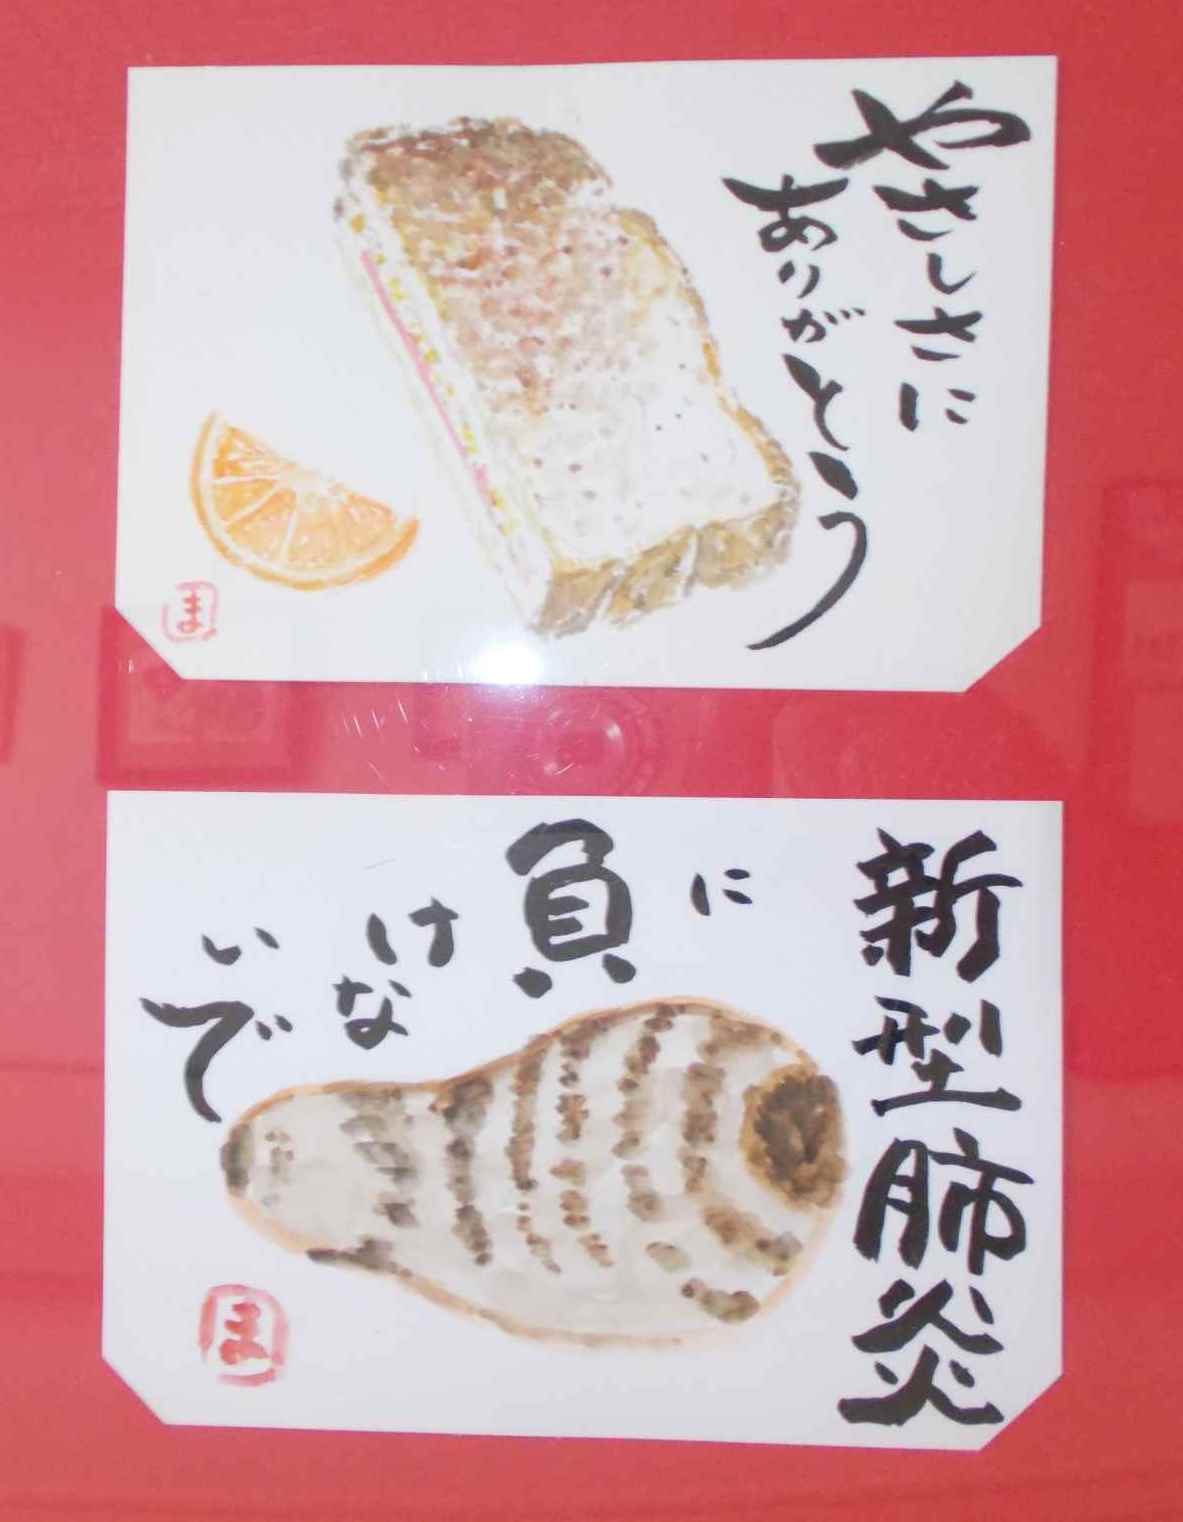 やさしさに
ありがとう
ま
新型肺炎
に
負
けな
いで
ま